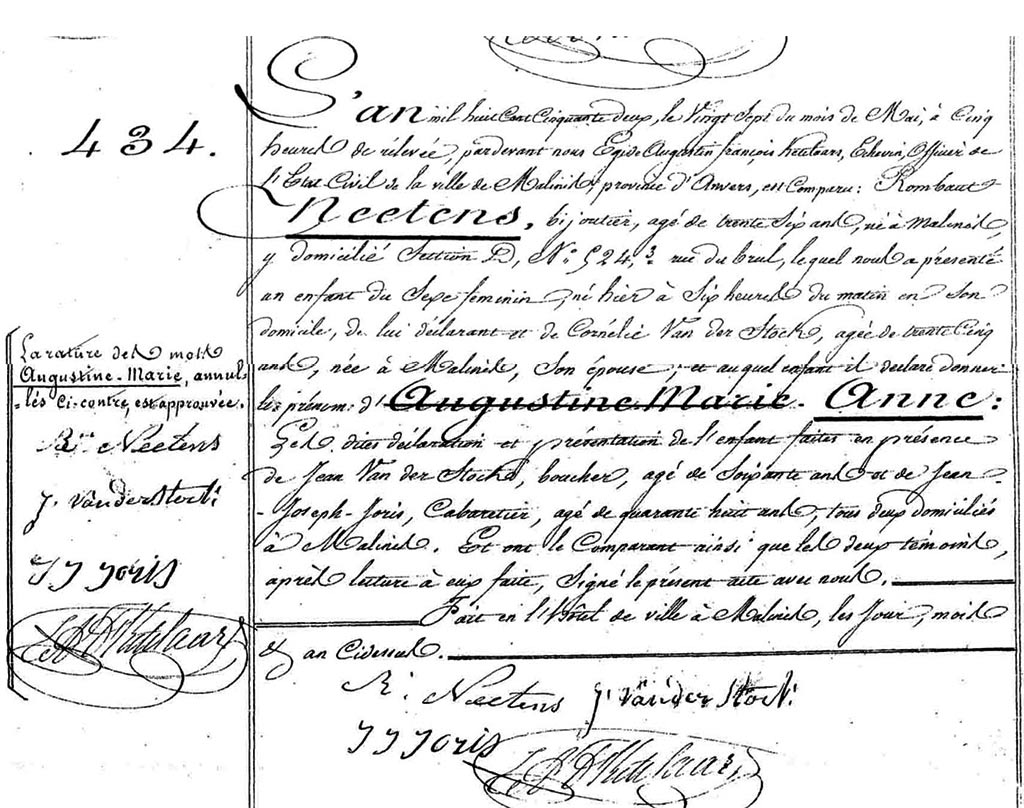 434.
L'an mil huit Cent Cinquante deux, le Vingt Sept du mois de Mai, à Cinq
heures de rélevée, pardevant nous Egide Augustin françois Ketelaars, Echevin, Officier de
l'Etat Civil de la ville de Malines, province d'Anvers, est Comparu: Rombaut
Neetens, bijoutier, agé de trente Six ans, né à Malines,
y domicilié Section D, N.° 524, 3. rue du brul, lequel nous a présenté
un enfant du Sexe feminin, né hier à Six heures du matin en Son
domicile, de lui déclarant et de Cornélie Van der Stock, agée de trente Cinq
ans, née à Malines, Son épouse, et auquel enfant il déclare donner
les prénom: d'Augustine-Marie-Anne:
Les dites déclaration et présentation de l'enfant faites en présence
de Jean Van der Stock, boucher, agé de Soixante ans et de Jean-
-Joseph-Joris, Cabaretier, agé de quarante huit ans, tous deux domiciliés
à Malines. Et ont le Comparant ainsi que les deux témoins,
après lecture à eux faite, Signé le présent acte avec nous.
Fait en l'hôtel de ville à Malines, les Jour, mois
& an Cidessus.
R: Neetens J. Vander Stock:
J J Joris
La rature des mots
Augustine-Marie, annul-
-lés Ci-contre, est approuvée.
R. Neetens
J. Vander Stock:
J J Joris